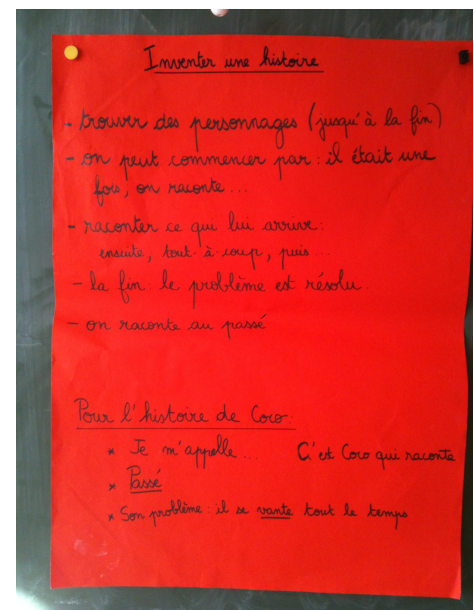 Inventer une histoire
- trouver des personnages (jusqu'à la fin)
- on peut commencer par : il était une
fois, on raconte...
- raconter ce qui lui arrive :
ensuite, tout à coup, puis...
- la fin : le problème est résolu.
- on raconte au passé
Pour l'histoire de Coco :
* Je m'appelle... C'est Coco qui raconte
* Passé
* Son problème : il se vante tout le temps